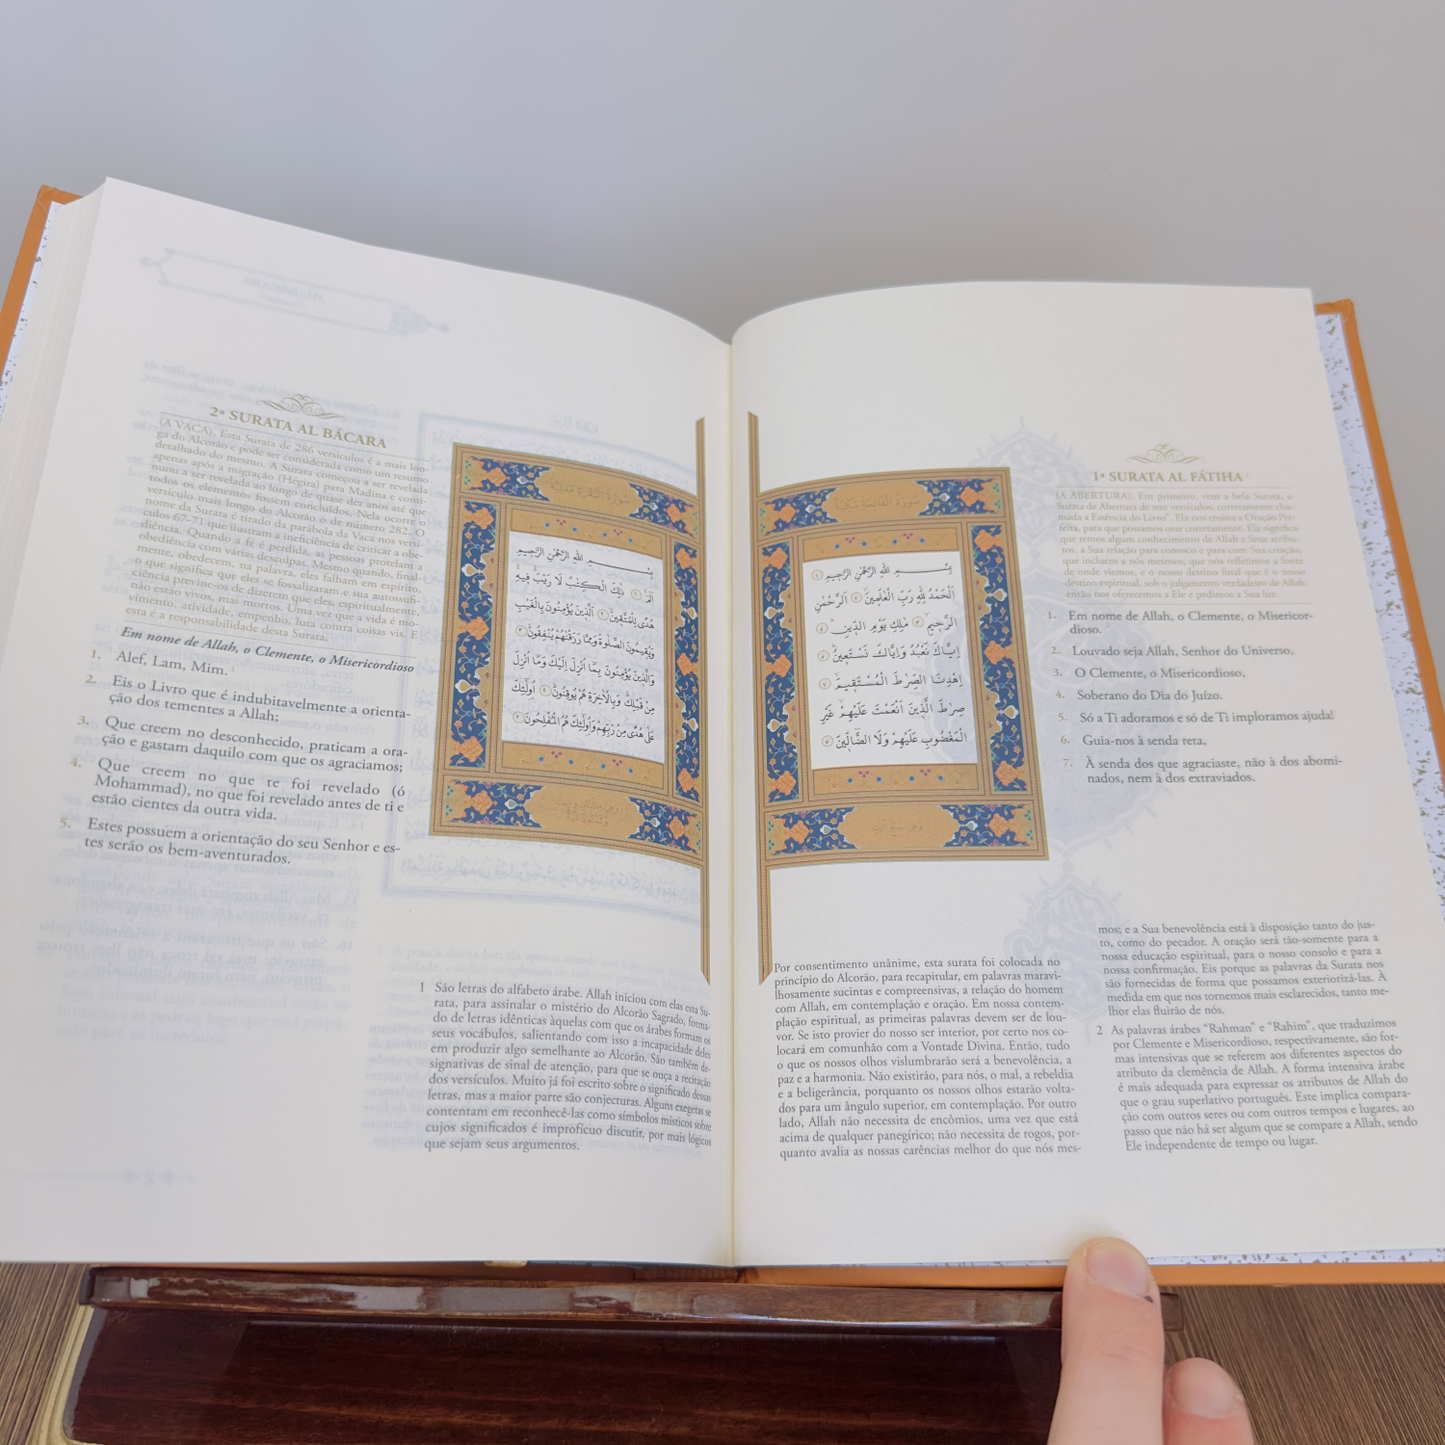 1ª SURATA AL FÁTIHA
(A ABERTURA), Em primeiro, vem a bela Surata, a
Surata de Abertura de sete versículos, corretamente cha-
mada a Essência do Livro¹. Ela nos ensina a Oração Per-
feita, para que possamos orar corretamente. Ela significa
que temos algum conhecimento de Allah e Seus atribu-
tos, a Sua relação para conosco e para com Sua criação,
que incluem a nós mesmos, que nós refletimos a fonte
de onde viemos, e o nosso destino final que é o nosso
destino espiritual, sob o julgamento verdadeiro de Allah:
então nos oferecemos a Ele e pedimos a Sua luz.
1. Em nome de Allah, o Clemente, o Misericor-
dioso.
2. Louvado seja Allah, Senhor do Universo,
3. O Clemente, o Misericordioso,
4. Soberano do Dia do Juízo.
5. Só a Ti adoramos e só de Ti imploramos ajuda!
6. Guia-nos à senda reta,
7. À senda dos que agraciaste, não à dos abomi-
nados, nem à dos extraviados.
سورة الفاتحة مكية
بِسْمِ اللهِ الرَّحْمٰنِ الرَّحِيْمِ ۝١
اَلْحَمْدُ لِلّٰهِ رَبِّ الْعٰلَمِيْنَ ۝٢ الرَّحْمٰنِ
الرَّحِيْمِ ۝٣ مٰلِكِ يَوْمِ الدِّيْنِ ۝٤
اِيَّاكَ نَعْبُدُ وَاِيَّاكَ نَسْتَعِيْنُ ۝٥
اِهْدِنَا الصِّرَاطَ الْمُسْتَقِيْمَ ۝٦
صِرَاطَ الَّذِيْنَ اَنْعَمْتَ عَلَيْهِمْ غَيْرِ
الْمَغْضُوْبِ عَلَيْهِمْ وَلَا الضَّآلِّيْنَ ۝٧
Por consentimento unânime, esta surata foi colocada no
princípio do Alcorão, para recapitular, em palavras maravi-
lhosamente sucintas e compreensivas, a relação do homem
com Allah, em contemplação e oração. Em nossa contem-
plação espiritual, as primeiras palavras devem ser de lou-
vor. Se isto provier do nosso ser interior, por certo nos co-
locará em comunhão com a Vontade Divina. Então, tudo
o que os nossos olhos vislumbrarão será a benevolência, a
paz e a harmonia. Não existirão, para nós, o mal, a rebeldia
e a beligerância, porquanto os nossos olhos estarão volta-
dos para um ângulo superior, em contemplação. Por outro
lado, Allah não necessita de encômios, uma vez que está
acima de qualquer panegírico; não necessita de rogos, por-
quanto avalia as nossas carências melhor do que nós mes-
mos; e a Sua benevolência está à disposição tanto do jus-
to, como do pecador. A oração será tão-somente para a
nossa educação espiritual, para o nosso consolo e para a
nossa confirmação. Eis porque as palavras da Surata nos
são fornecidas de forma que possamos exteriorizá-las. À
medida em que nos tornemos mais esclarecidos, tanto me-
lhor elas fluirão de nós.
2 As palavras árabes “Rahman” e “Rahim”, que traduzimos
por Clemente e Misericordioso, respectivamente, são for-
mas intensivas que se referem aos diferentes aspectos do
atributo da clemência de Allah. A forma intensiva árabe
é mais adequada para expressar os atributos de Allah do
que o grau superlativo português. Este implica compara-
ção com outros seres ou com outros tempos e lugares, ao
passo que não há ser algum que se compare a Allah, sendo
Ele independente de tempo ou lugar.
2ª SURATA AL BÁCARA
(A VACA), Esta Surata de 286 versículos é a mais lon-
ga do Alcorão e pode ser considerada como um resumo
detalhado do mesmo. A Surata começou a ser revelada
apenas após a migração (Hégira) para Madina e conti-
nuou a ser revelada ao longo de quase dez anos até que
todos os elementos fossem concluídos. Nela ocorre o
versículo mais longo do Alcorão o de número 282. O
nome da Surata é tirado da parábola da Vaca nos versí-
culos 67-71 que ilustram a ineficiência de criticar a obe-
diência. Quando a fé é perdida, as pessoas protelam a
obediência com várias desculpas. Mesmo quando, final-
mente, obedecem, na palavra, eles falham em espírito,
o que significa que eles se fossalizaram e sua autossufi-
ciência previne-os de dizerem que eles, espiritualmente,
não estão vivos, mas mortos. Uma vez que a vida é mo-
vimento, atividade, empenho, luta contra coisas vis. E
esta é a responsabilidade desta Surata.
Em nome de Allah, o Clemente, o Misericordioso
1. Alef, Lam, Mim.
2. Eis o Livro que é indubitavelmente a orienta-
ção dos tementes a Allah;
3. Que creem no desconhecido, praticam a ora-
ção e gastam daquilo com que os agraciamos;
4. Que creem no que te foi revelado (ó
Mohammad), no que foi revelado antes de ti e
estão cientes da outra vida.
5. Estes possuem a orientação do seu Senhor e es-
tes serão os bem-aventurados.
سورة البقرة مدنية
بِسْمِ اللهِ الرَّحْمٰنِ الرَّحِيْمِ
الٓمّٓ ۝١ ذٰلِكَ الْكِتٰبُ لَا رَيْبَ فِيْهِ
هُدًى لِّلْمُتَّقِيْنَ ۝٢ الَّذِيْنَ يُؤْمِنُوْنَ بِالْغَيْبِ
وَيُقِيْمُوْنَ الصَّلٰوةَ وَمِمَّا رَزَقْنٰهُمْ يُنْفِقُوْنَ ۝٣
وَالَّذِيْنَ يُؤْمِنُوْنَ بِمَآ اُنْزِلَ اِلَيْكَ وَمَآ اُنْزِلَ
مِنْ قَبْلِكَ وَبِالْاٰخِرَةِ هُمْ يُوْقِنُوْنَ ۝٤ اُولٰٓئِكَ
عَلٰى هُدًى مِّنْ رَّبِّهِمْ وَاُولٰٓئِكَ هُمُ الْمُفْلِحُوْنَ ۝٥
1 São letras do alfabeto árabe. Allah iniciou com elas esta Su-
rata, para assinalar o mistério do Alcorão Sagrado, forma-
do de letras idênticas àquelas com que os árabes formam os
seus vocábulos, salientando com isso a incapacidade deles
em produzir algo semelhante ao Alcorão. São também de-
signativas de sinal de atenção, para que se ouça a recitação
dos versículos. Muito já foi escrito sobre o significado dessas
letras, mas a maior parte são conjecturas. Alguns exegetas se
contentam em reconhecê-las como símbolos místicos sobre
cujos significados é improfícuo discutir, por mais lógicos
que sejam seus argumentos.